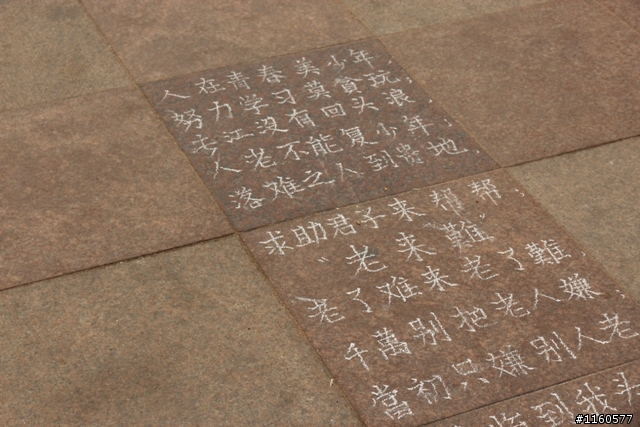 人在青春美少年
努力学习莫貪玩
长江没有回头浪
人老不能复少年
落难之人到贵地
求助君子来帮帮
"老来難"
老了难来老了難
千萬别把老人嫌
當初只嫌别人老
到我头
#1160577